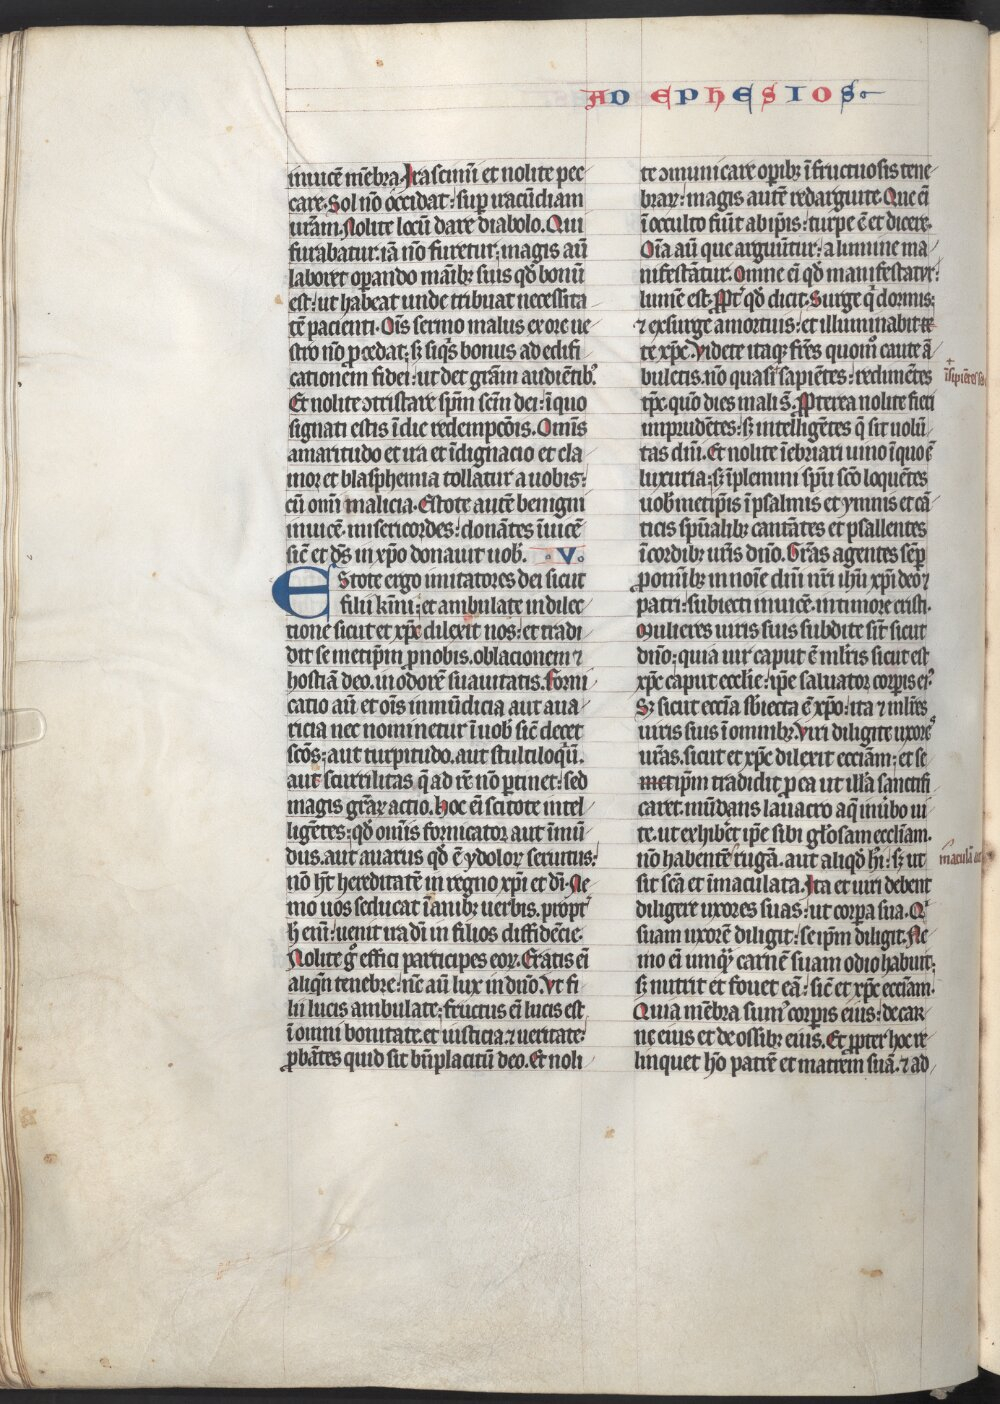 AD EPHESIOS
inuicē mēbra. Irascimī et nolite pec
care. Sol nō occidat: sup iracūdiam
urām. Nolite locū dare diabolo. Qui
furabatur. iā nō furetur: magis aū
laboret opando manībꝫ suis qđ bonū
est: ut habeat unde tribuat necessita
tē pacienti. Oīs sermo malus ex ore ue
stro nō pcedat: sꝫ siqͥs bonus ad edifi
cationem fidei: ut det grām audiētibꝰ.
Et nolite ↄtristare spm̄ scm̄ dei: ī quo
signati estis ī die redempcōis. Omīs
amaritudo et ira et īdignacio et cla
mor et blasphemia tollatur a uobis:
cū omī malicia. Estote autē benigni
inuicē. misericordes: donātes īuicē
sic̄ et dꝰs in xpo donauit uob̄. V.
Estote ergo imitatores dei sicut
filii kmī: et ambulate in dilec
tione sicut et xpc dilexit nos: et tradi
dit se metipm̄ p nobis. oblacionem ⁊
hostiā deo. in odorē suauitatis. Forni
catio aū et oīs inmūdicia aut aua
ricia nec nominetur ī uob̄ sic̄ decet
scōs: aut turpitudo. aut stultiloqͥū.
aut scurrilitas q̄ ad rē nō ptinet: sed
magis grāꝝ actio. Hoc eī scitote intel
ligētes: qđ omīs fornicator aut īmū
dus. aut auarus qđ ē ydoloꝝ seruitus:
nō hn̄t hereditatē in regno xpi et dī. Ne
mo uos seducat īanibꝫ uerbis. proptʼ
h̄ enī: uenit ira dī in filios diffidēcie.
Nolite gͦ effici participes eoꝝ. Eratis eī
aliqn̄ tenebre: nc̄ aū lux in dn̄o. Vt fi
lii lucis ambulate: fructus eī lucis est
ī omni bonitate. et iusticia. ⁊ ueritate:
pbātes quid sit bn̄placitū deo. Et noli
te ↄmunicare opibꝫ īfructuosis tene
braꝝ: magis autē redarguite. Que eī
ī occulto fiūt ab ipīs: turpe ē et dicere.
Oīa aū que arguūtur: a lumine ma
nifestātur. Omne eī qđ manifestatʳ:
lumē est. Pptʼ qđ dicit. Surge qͥ dormis:
⁊ exsurge a mortuis: et illuminabit te
te xpc. Videte itaqꝫ frēs quomͦ caute ā
buletis. nō quasi sapiētes: redimētes
īsipiētes sꝫ
tp̄c. quō dies mali s̄. Ppterea nolite fieri
imprudētes: sꝫ intelligētes q̄ sit uolū
tas dīni. Et nolite īebriari uino ī quo ē
luxuria: sꝫ īplemini spū scō loquētes
uob̄ metipīs ī psalmis et ymnis et cā
ticis spūalibꝫ cantātes et psallentes
ī cordibꝫ urīs dn̄o. Grās agentes sēp
p omībꝫ in noīe dīni nrī ihū xpi deo ⁊
patri: subiecti inuicē. in timore cristi.
Mulieres uiris suis subdite sīt sicut
dn̄o: quia uir caput ē mlrīs sicut est
xpc caput ecclīe: ipe saluator corpis eiꝰ.
Sꝫ sicut ecc̄ia sbiecta ē xpo: ita ⁊ mlrēs
uiris suis ī omnibꝫ. Viri diligite uxoreˢ
urās. sicut et xpc dilexit ecc̄iam: et se
met ipm̄ tradidit p ea ut illā sanctifi
caret. mūdans lauacro aq̄ in ūbo ui
te. ut exhibet̄ ipe sibi glosam eccl̄iam.
nō habentē rugā. aut aliqđ hī: sꝫ ut
maculā aut
sit scā et īmaculata. Ita et uiri debent
diligere uxores suas: ut corpa sua. Qͥ
suam uxorē diligit: se ipm̄ diligit. Ne
mo eī umqͣ carnē suam odio habuit:
sꝫ nutrit et fouet eā: sic̄ et xpc ecc̄iam.
Quia mēbra sumꝰ corpis eius: de car
ne eius et de ossibꝫ eius. Et ppter hoc re
linquet hō patrē et matrem suā. ⁊ ad